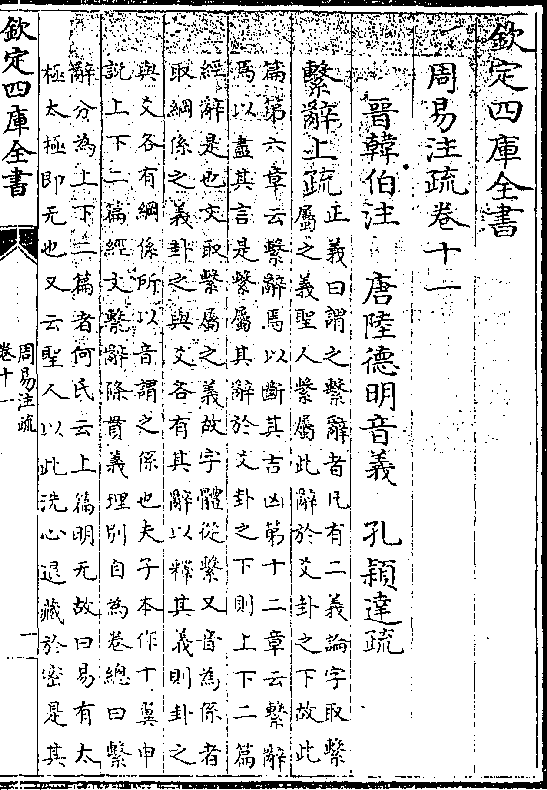 欽定四庫全書
周易注疏卷十一
晉韓伯注　唐陸德明音義　孔穎達疏
繫辭上疏正義曰謂之繫辭者凡有二義論字取繫
屬之義聖人繫屬此辭於爻卦之下故此
篇第六章云繫辭焉以斷其吉凶第十二章云繫辭
焉以盡其言是繫屬其辭於爻卦之下則上下二篇
經辭是也文取繫屬之義故字體從繫又音為係者
取綱係之義卦之與爻各有其辭以釋其義則卦之
與爻各有綱係所以音謂之係也夫子本作十翼申
說上下二篇經文繫辭條貫義理別自為卷總曰繫
辭分為上下二篇者何氏云上篇明无故曰易有太
極太極即无也又云聖人以此洗心退藏於密是其
欽定四庫全書
周易注疏
卷十一
一